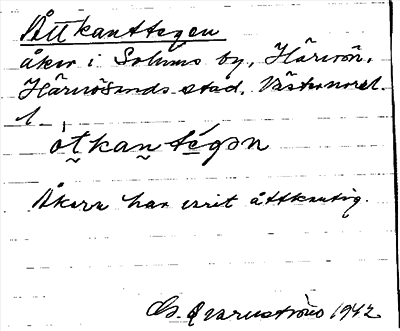 Åttkanttegen
åker i Solums by, Härnön,
Härnösands stad, Västernorrl.
l.
ò̀t̰kan̰tégən
Åkern har varit åttkantig.
G. Qvarnström 1942